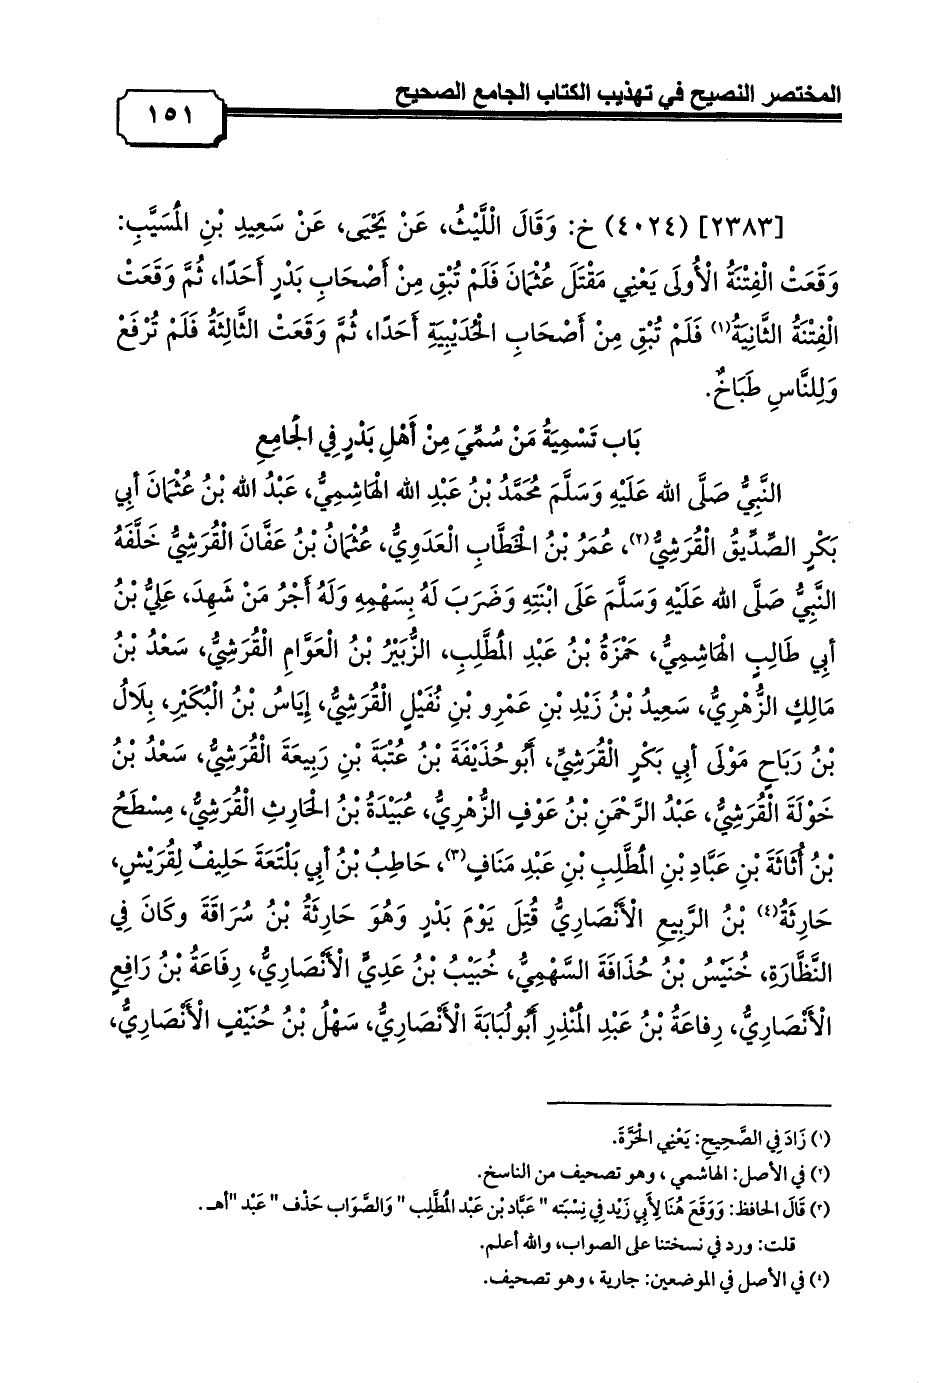 المختصر النصيح في تهذيب الكتاب الجامع الصحيح
١٥١
[٢٣٨٣] (٤٠٢٤) خ: وَقَالَ اللَّيْثُ، عَنْ يَحْيَى، عَنْ سَعِيدِ بْنِ الْمُسَيَّبِ:
وَقَعَتْ الْفِتْنَةُ الْأُولَى يَعْنِي مَقْتَلَ عُثْمَانَ فَلَمْ تُبْقِ مِنْ أَصْحَابِ بَدْرٍ أَحَدًا، ثُمَّ وَقَعَتْ
الْفِتْنَةُ الثَّانِيَةُ(١) فَلَمْ تُبْقِ مِنْ أَصْحَابِ الْحُدَيْبِيَةِ أَحَدًا، ثُمَّ وَقَعَتْ الثَّالِثَةُ فَلَمْ تُرْفَعْ
وَلِلنَّاسِ طَبَاخٌ.
بَاب تَسْمِيَةُ مَنْ سُمِّيَ مِنْ أَهْلِ بَدْرٍ فِي الْجَامِعِ
النَّبِيُّ صَلَّى الله عَلَيْهِ وَسَلَّمَ مُحَمَّدُ بْنُ عَبْدِ الله الْهَاشِمِيُّ، عَبْدُ الله بْنُ عُثْمَانَ أَبِي
بَكْرٍ الصِّدِّيقُ الْقُرَشِيُّ(٢)، عُمَرُ بْنُ الْخَطَّابِ الْعَدَوِيُّ، عُثْمَانُ بْنُ عَفَّانَ الْقُرَشِيُّ خَلَّفَهُ
النَّبِيُّ صَلَّى الله عَلَيْهِ وَسَلَّمَ عَلَى ابْنَتِهِ وَضَرَبَ لَهُ بِسَهْمِهِ وَلَهُ أَجْرُ مَنْ شَهِدَ، عَلِيُّ بْنُ
أَبِي طَالِبٍ الْهَاشِمِيُّ، حَمْزَةُ بْنُ عَبْدِ الْمُطَّلِبِ، الزُّبَيْرُ بْنُ الْعَوَّامِ الْقُرَشِيُّ، سَعْدُ بْنُ
مَالِكٍ الزُّهْرِيُّ، سَعِيدُ بْنُ زَيْدِ بْنِ عَمْرِو بْنِ نُفَيْلٍ الْقُرَشِيُّ، إِيَاسُ بْنُ الْبُكَيْرِ، بِلَالُ
بْنُ رَبَاحٍ مَوْلَى أَبِي بَكْرٍ الْقُرَشِيِّ، أَبُو حُذَيْفَةَ بْنُ عُتْبَةَ بْنِ رَبِيعَةَ الْقُرَشِيُّ، سَعْدُ بْنُ
خَوْلَةَ الْقُرَشِيُّ، عَبْدُ الرَّحْمَنِ بْنُ عَوْفٍ الزُّهْرِيُّ، عُبَيْدَةُ بْنُ الْحَارِثِ الْقُرَشِيُّ، مِسْطَحُ
بْنُ أُثَاثَةَ بْنِ عَبَّادِ بْنِ الْمُطَّلِبِ بْنِ عَبْدِ مَنَافٍ(٣)، حَاطِبُ بْنُ أَبِي بَلْتَعَةَ حَلِيفٌ لِقُرَيْشٍ،
حَارِثَةُ(٤) بْنُ الرَّبِيعِ الْأَنْصَارِيُّ قُتِلَ يَوْمَ بَدْرٍ وَهُوَ حَارِثَةُ بْنُ سُرَاقَةَ وَكَانَ فِي
النَّظَّارَةِ، خُنَيْسُ بْنُ حُذَافَةَ السَّهْمِيُّ، خُبَيْبُ بْنُ عَدِيٍّ الْأَنْصَارِيُّ، رِفَاعَةُ بْنُ رَافِعٍ
الْأَنْصَارِيُّ، رِفاعَةُ بْنُ عَبْدِ الْمُنْذِرِ أَبُو لُبَابَةَ الْأَنْصَارِيُّ، سَهْلُ بْنُ حُنَيْفٍ الْأَنْصَارِيُّ،
(١) زَادَ فِي الصَّحِيحِ: يَعْنِي الْحَرَّةَ.
(٢) في الأصل: الهاشمي، وهو تصحيف من الناسخ.
(٣) قَالَ الحافظ: وَوَقَعَ هُنَا لِأَبِي زَيْد فِي نِسْبَته "عَبَّاد بْن عَبْد الْمُطَّلِب" وَالصَّوَاب حَذْف "عَبْد" أهـ.
قلت: ورد في نسختنا على الصواب، والله أعلم.
(٤) في الأصل في الموضعين: جارية، وهو تصحيف.